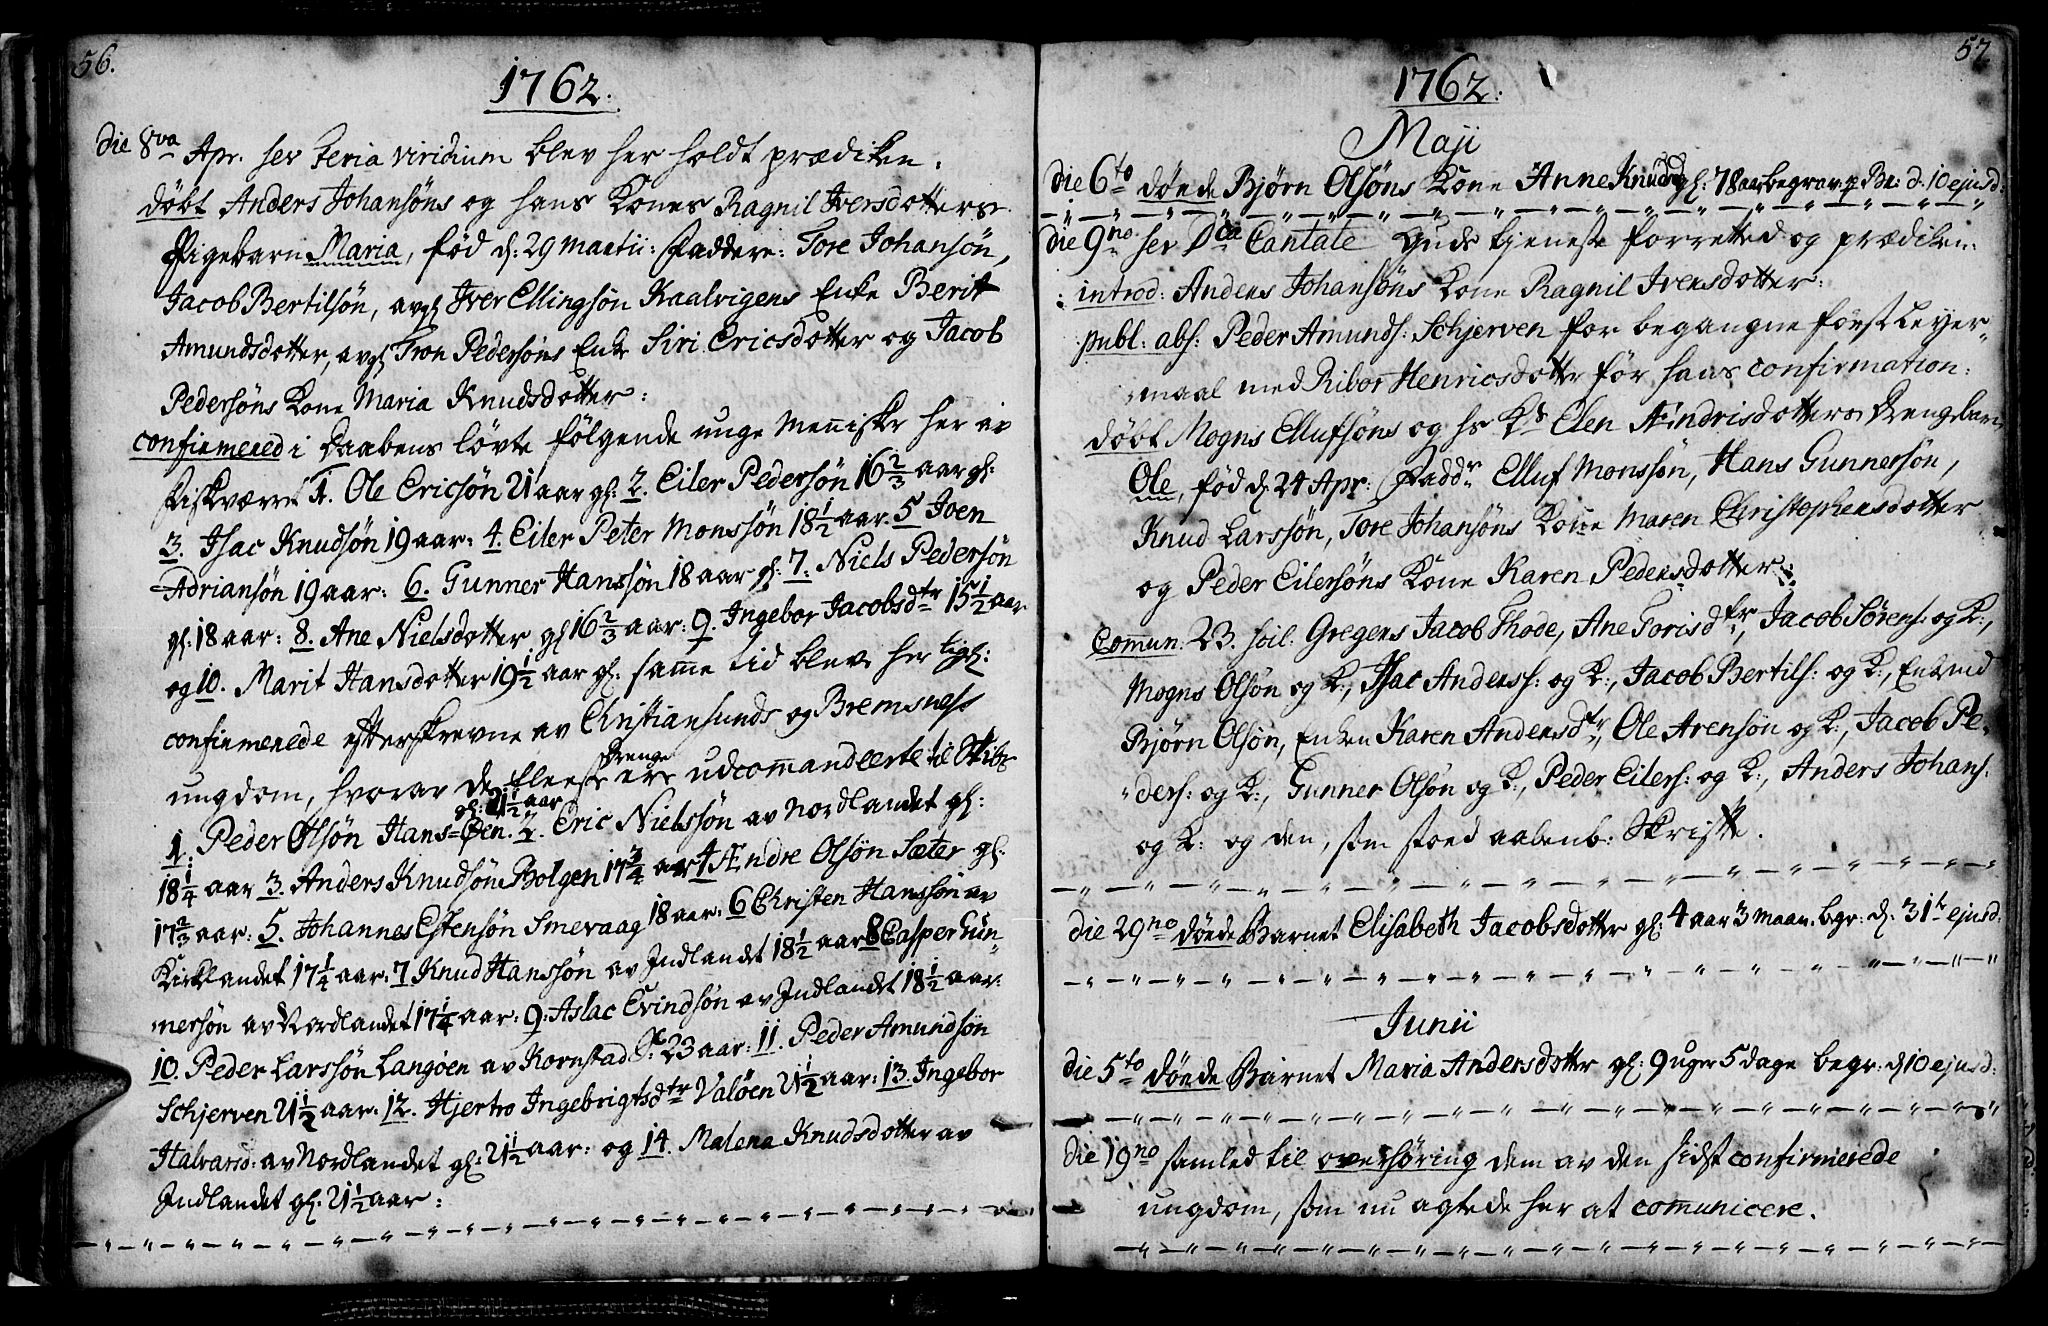 56.
1762.
die 8va Apr. sev Feria viridium blev her holdt prædiken.
döbt Anders Johansöns og hans Kones Ragnil Iversdotters
Pigebarn Maria, fød d: 29 Martii: Faddere: Tore Johansön,
Jacob Bertilsön, avg Iver Ellingsön Kaalvigens Enke Berit
Amundsdotter, avg Tron Pedersöns Enke Siri Ericsdotter og Jacob
Pedersöns Kone Maria Knudsdotter:
confirmered i Daabens løvte følgende unge Meñiske her av
Fiskværret 1. Ole Ericsön 21 aar gl: 2. Eiler Pedersön 16 2/3 aar gl:
3. Isac Knudsön 19 aar: 4. Eiler Peter Monssön 18 1/2 aar. 5 Joen
Adriansön 19 aar: 6. Gunner Hanssön 18 aar gl: 7. Niels Pedersön
gl: 18 aar: 8. Ane Nielsdotter gl 16 2/3 aar: 9. Ingebor Jacobsdtr 15 1/2 aar
og 10. Marit Hansdotter 19 1/2 aar gl: sam̄e tid blev her ligl:
confirmerede efterskrevne av Christiansunds og Bremsness
ungdom, hvorav de fleeste Drenge ere udcom̄anderte til Skibs
1. Peder Olsön Hans=Øen gl: 21 1/2 aar. 2. Eric Nielssön av Nordlandet gl:
18 1/4 aar 3. Anders Knudsön Bolgen 17 3/4 aar 4 Ændre Olsön Sæter gl.
17 2/3 aar: 5. Johannes Estensön Smevaag 18 aar: 6 Christen Hanssön av
Kirklandet 17 1/4 aar: 7 Knud Hanssön av Indlandet 18 1/2 aar 8 Casper Gun-
nersön av Nordlandet 17 1/4 aar: 9. Aslac Evindsön av Indlandet 18 1/2 aar:
10. Peder Larssön Langöen av Kornstad gl: 23 aar: 11. Peder Amundsön
Schjerven 21 1/2 aar: 12. Hjertro Ingebrigtsdtr Valöen 21 1/2 aar: 13. Ingebor
Halvarsd: av Nordlandet gl: 21 1/2 aar: og 14. Malena Knudsdotter av
Indlandet gl. 21 1/2 aar:
57.
1762.
Maji
die 6to döede Bjørn Olsöns Kone Anne Knudsd gl: 78 aar begrav. p Br: d. 10 ejusd:
die 9no sev Dca Cantate Guds tjeneste forretted og prædiken.
introd: Anders Johansöns Kone Ragnil Iversdotter:
publ: abs: Peder Amunds: Schjerven for begangne förste Leyer-
maal med Ribor Henricsdotter för hans confirmation:
döbt Mogns Ellufsöns og hs Ks Elen Æindrisdotters Drengebarn
Ole, fød d. 24 Apr: Faddr Elluf Monssön, Hans Gunnersön,
Knud Larssön, Tore Johansöns Koñe Maren Christophersdotter
og Peder Eilersöns Kone Karen Pedersdotter:
Com̄un. 23. soil. Gregers Jacob Thode, Ane Torisdtr, Jacob Sörens: og K:,
Mogns Olsön og K:, Isac Anderss: og K:, Jacob Bertils: og K:, Enkmd
Bjørn Olsön, Enken Karen Andersdtr, Ole Arensön og K:, Jacob Pe-
ders: og K:, Gunner Olsön og K:, Peder Eilers: og K:, Anders Johans:
og K: og den, som stoed aabenb: Skrifte.
die 29no döede Barnet Elisabeth Jacobsdotter gl: 4 aar 3 maan. begr: d. 31te ejusd:
Junii
die 5to döede Barnet Maria Andersdotter gl: 9 uger 5 dage begr: d 10 ejusd:
die 19no samled til overhöring dem av den sidst confirmerede
ungdom, som nu agtede her at com̄unicere.